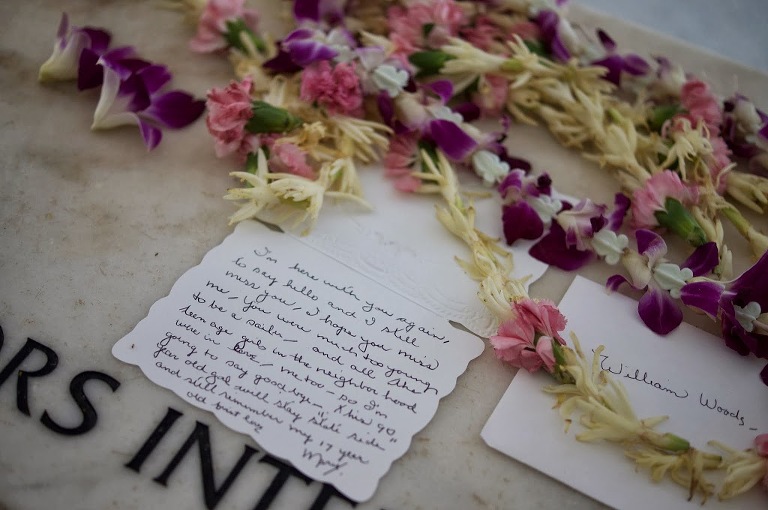 I'm here with you again,
to say hello and I still
miss you, I hope you miss
me, You were much too young
to be a sailor, and all the
teen age girls in the neighbor hood
were in love, me too - so I'm
going to say good bye - this 90
year old girl will stay "state side"
and still remember my 17 year
old
Mary.
William Woods -
ORS INTE